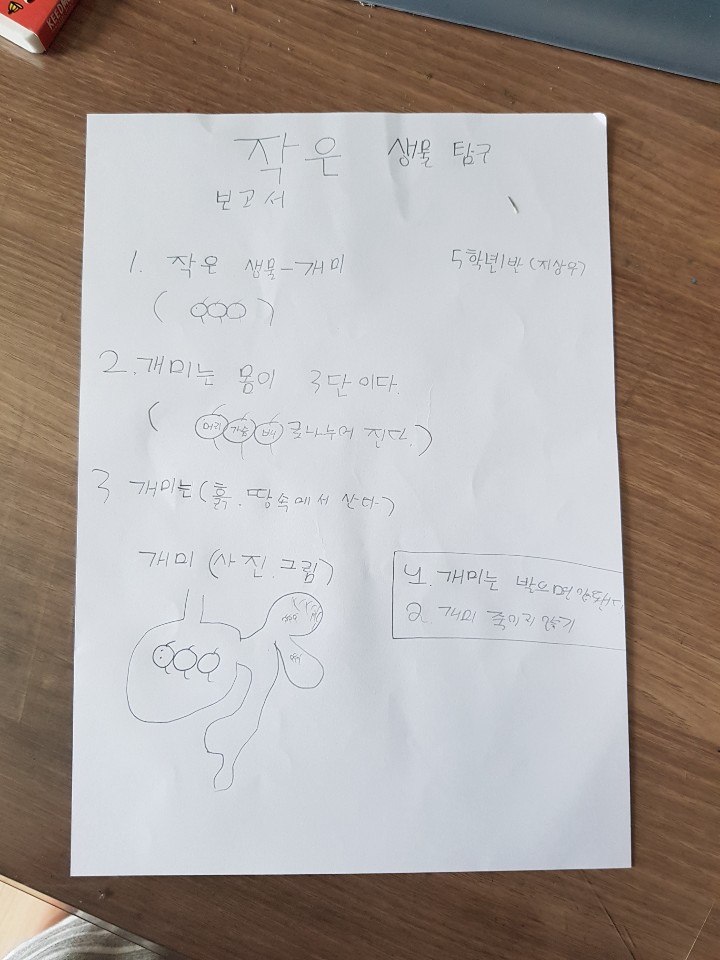 작은 생물 탐구
보고서
1. 작은 생물-개미
5학년1반 (지상우)
2. 개미는 몸이 3단이다.
( 머리 가슴 배 로나누어 진다.)
3 개미는(흙. 땅속에서 산다)
개미 (사진.그림)
개미는 밟으면 안됀다
2. 개미 죽이지 않기